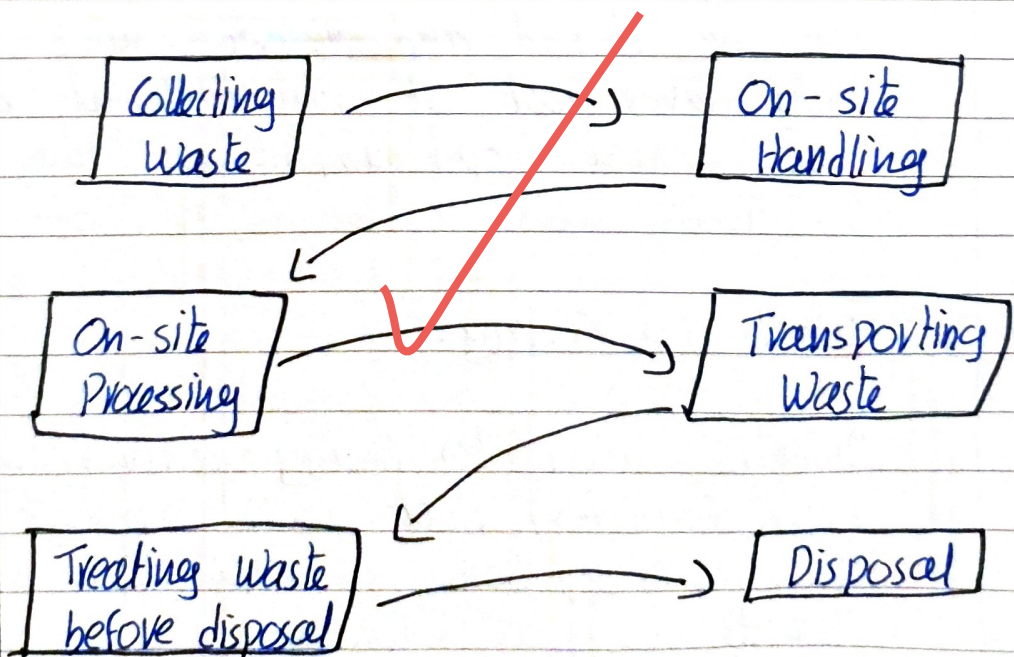 Collecting
Waste
On-site
Handling
On-site
Processing
Transporting
Waste
Treating waste
before disposal
Disposal